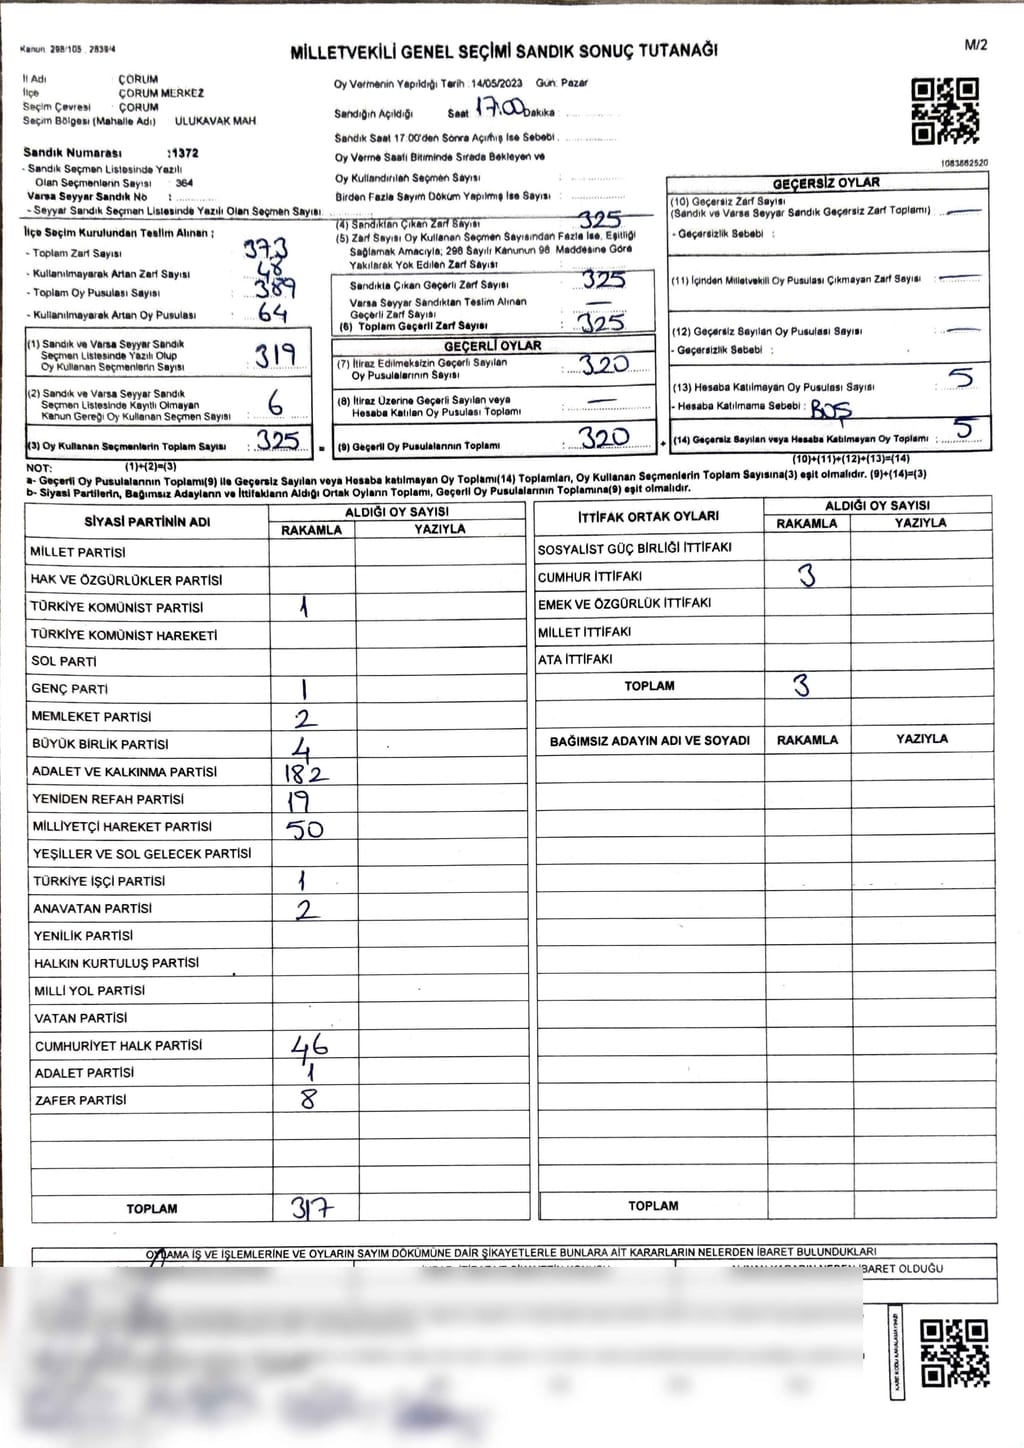 Kanun 298/105 , 2839/4
MİLLETVEKİLİ GENEL SEÇİMİ SANDIK SONUÇ TUTANAĞI
M/2
İl Adı : ÇORUM
İlçe : ÇORUM MERKEZ
Seçim Çevresi : ÇORUM
Seçim Bölgesi (Mahalle Adı) ULUKAVAK MAH
Sandık Numarası :1372
- Sandık Seçmen Listesinde Yazılı
Olan Seçmenlerin Sayısı : 364
Varsa Seyyar Sandık No :
- Seyyar Sandık Seçmen Listesinde Yazılı Olan Seçmen Sayısı
Oy Vermenin Yapıldığı Tarih : 14/05/2023 Gün: Pazar
Sandığın Açıldığı Saat 17:00 Dakika
Sandık Saat 17:00'den Sonra Açılmış İse Sebebi
Oy Verme Saati Bitiminde Sırada Bekleyen ve
Oy Kullandırılan Seçmen Sayısı :
Birden Fazla Sayım Döküm Yapılmış İse Sayısı :
1083862520
İlçe Seçim Kurulundan Teslim Alınan ;
- Toplam Zarf Sayısı : 373
- Kullanılmayarak Artan Zarf Sayısı : 48
- Toplam Oy Pusulası Sayısı : 389
- Kullanılmayarak Artan Oy Pusulası : 64
(1) Sandık ve Varsa Seyyar Sandık
Seçmen Listesinde Yazılı Olup
Oy Kullanan Seçmenlerin Sayısı : 319
(2) Sandık ve Varsa Seyyar Sandık
Seçmen Listesinde Kayıtlı Olmayan
Kanun Gereği Oy Kullanan Seçmen Sayısı : 6
(3) Oy Kullanan Seçmenlerin Toplam Sayısı : 325
(4) Sandıktan Çıkan Zarf Sayısı 325
(5) Zarf Sayısı Oy Kullanan Seçmen Sayısından Fazla İse, Eşitliği
Sağlamak Amacıyla; 298 Sayılı Kanunun 98 Maddesine Göre
Yakılarak Yok Edilen Zarf Sayısı :
Sandıkta Çıkan Geçerli Zarf Sayısı : 325
Varsa Seyyar Sandıktan Teslim Alınan
Geçerli Zarf Sayısı : —
(6) Toplam Geçerli Zarf Sayısı : 325
GEÇERLİ OYLAR
(7) İtiraz Edilmeksizin Geçerli Sayılan
Oy Pusulalarının Sayısı : 320
(8) İtiraz Üzerine Geçerli Sayılan veya
Hesaba Katılan Oy Pusulası Toplamı : —
= (9) Geçerli Oy Pusulalarının Toplamı : 320
GEÇERSİZ OYLAR
(10) Geçersiz Zarf Sayısı
(Sandık ve Varsa Seyyar Sandık Geçersiz Zarf Toplamı) —
- Geçersizlik Sebebi :
(11) İçinden Milletvekili Oy Pusulası Çıkmayan Zarf Sayısı : —
(12) Geçersiz Sayılan Oy Pusulası Sayısı : —
- Geçersizlik Sebebi :
(13) Hesaba Katılmayan Oy Pusulası Sayısı : 5
- Hesaba Katılmama Sebebi : BOŞ
+ (14) Geçersiz Sayılan veya Hesaba Katılmayan Oy Toplamı : 5
NOT: (1)+(2)=(3)
(10)+(11)+(12)+(13)=(14)
a- Geçerli Oy Pusulalarının Toplamı(9) ile Geçersiz Sayılan veya Hesaba katılmayan Oy Toplamı(14) Toplamları, Oy Kullanan Seçmenlerin Toplam Sayısına(3) eşit olmalıdır. (9)+(14)=(3)
b- Siyasi Partilerin, Bağımsız Adayların ve İttifakların Aldığı Ortak Oyların Toplamı, Geçerli Oy Pusulalarının Toplamına(9) eşit olmalıdır.
SİYASİ PARTİNİN ADI
ALDIĞI OY SAYISI
RAKAMLA YAZIYLA
MİLLET PARTİSİ
HAK VE ÖZGÜRLÜKLER PARTİSİ
TÜRKİYE KOMÜNİST PARTİSİ 1
TÜRKİYE KOMÜNİST HAREKETİ
SOL PARTİ
GENÇ PARTİ 1
MEMLEKET PARTİSİ 2
BÜYÜK BİRLİK PARTİSİ 4
ADALET VE KALKINMA PARTİSİ 182
YENİDEN REFAH PARTİSİ 19
MİLLİYETÇİ HAREKET PARTİSİ 50
YEŞİLLER VE SOL GELECEK PARTİSİ
TÜRKİYE İŞÇİ PARTİSİ 1
ANAVATAN PARTİSİ 2
YENİLİK PARTİSİ
HALKIN KURTULUŞ PARTİSİ
MİLLİ YOL PARTİSİ
VATAN PARTİSİ
CUMHURİYET HALK PARTİSİ 46
ADALET PARTİSİ 1
ZAFER PARTİSİ 8
TOPLAM 317
İTTİFAK ORTAK OYLARI
ALDIĞI OY SAYISI
RAKAMLA YAZIYLA
SOSYALİST GÜÇ BİRLİĞİ İTTİFAKI
CUMHUR İTTİFAKI 3
EMEK VE ÖZGÜRLÜK İTTİFAKI
MİLLET İTTİFAKI
ATA İTTİFAKI
TOPLAM 3
BAĞIMSIZ ADAYIN ADI VE SOYADI RAKAMLA YAZIYLA
TOPLAM
OYLAMA İŞ VE İŞLEMLERİNE VE OYLARIN SAYIM DÖKÜMÜNE DAİR ŞİKAYETLERLE BUNLARA AİT KARARLARIN NELERDEN İBARET BULUNDUKLARI
İBARET OLDUĞU